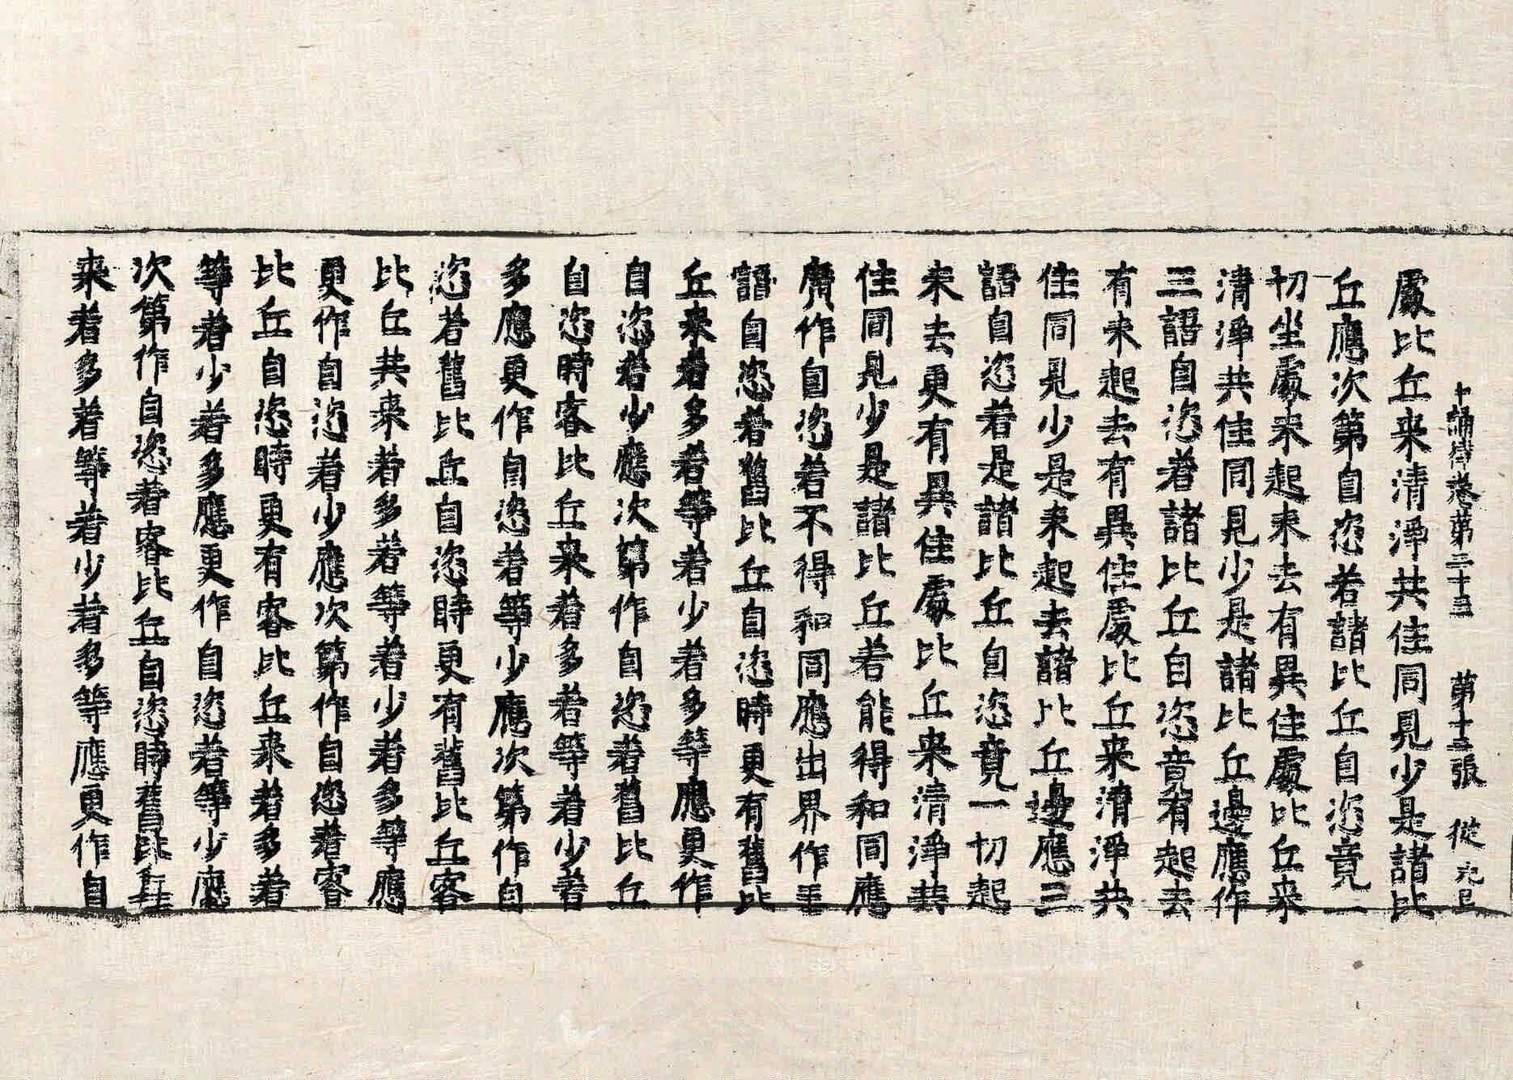 十誦律卷第二十三　第十三張　從
處比丘来清淨共住同見少是諸比
丘應次第自恣若諸比丘自恣竟一
切坐處未起未去有異住處比丘来
清淨共住同見少是諸比丘邊應作
三語自恣若諸比丘自恣竟有起去
有未起去有異住處比丘来清淨共
住同見少是未起去諸比丘邊應三
語自恣若是諸比丘自恣竟一切起
未去更有異住處比丘来清淨共
住同見少是諸比丘若能得和同應
廣作自恣若不得和同應出界作三
語自恣若舊比丘自恣時更有舊比
丘来若多若等若少若多等應更作
自恣若少應次第作自恣若舊比丘
自恣時客比丘来若多若等若少若
多應更作自恣若等少應次第作自
恣若舊比丘自恣時更有舊比丘客
比丘共来若多若等若少若多等應
更作自恣若少應次第作自恣若客
比丘自恣時更有客比丘来若多若
等若少若多應更作自恣若等少應
次第作自恣若客比丘自恣時舊比丘
来若多若等若少若多等應更作自